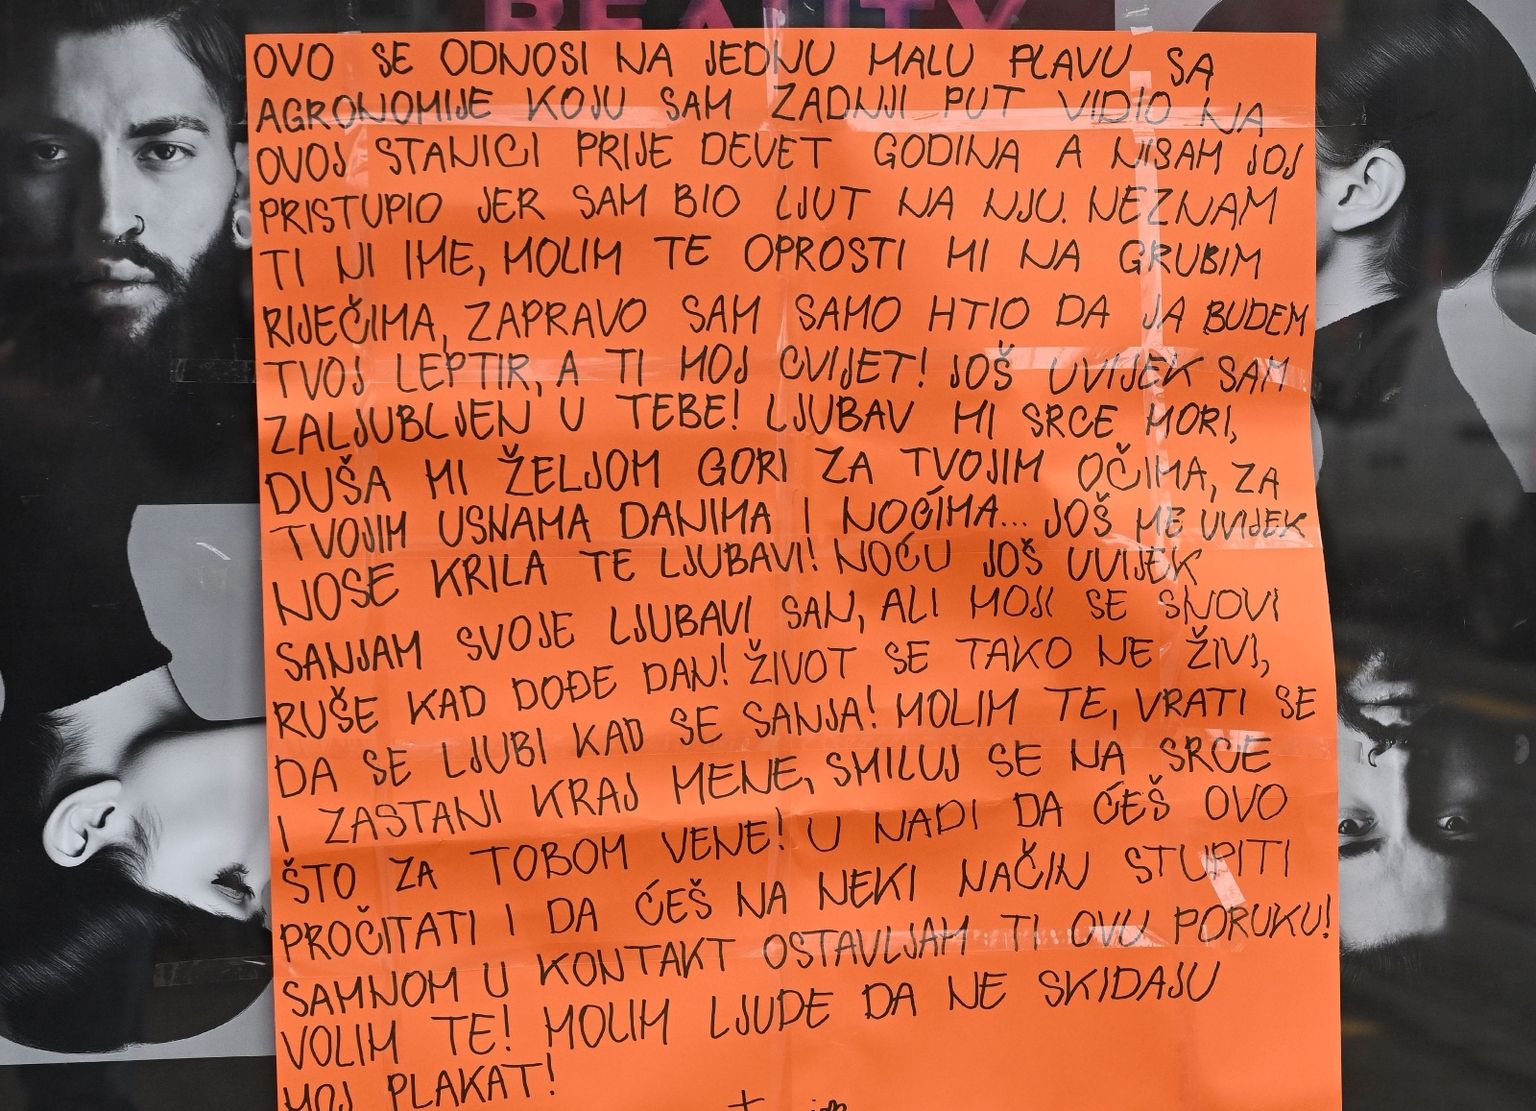 REALITY
OVO SE ODNOSI NA JEDNU MALU PLAVU SA
AGRONOMIJE KOJU SAM ZADNJI PUT VIDIO NA
OVOJ STANICI PRIJE DEVET GODINA A NISAM JOJ
PRISTUPIO JER SAM BIO LJUT NA NJU. NEZNAM
TI NI IME, MOLIM TE OPROSTI MI NA GRUBIM
RIJEČIMA, ZAPRAVO SAM SAMO HTIO DA JA BUDEM
TVOJ LEPTIR, A TI MOJ CVIJET! JOŠ UVIJEK SAM
ZALJUBLJEN U TEBE! LJUBAV MI SRCE MORI,
DUŠA MI ŽELJOM GORI ZA TVOJIM OČIMA, ZA
TVOJIM USNAMA DANIMA I NOĆIMA... JOŠ ME UVIJEK
NOSE KRILA TE LJUBAVI! NOĆU JOŠ UVIJEK
SANJAM SVOJE LJUBAVI SAN, ALI MOJI SE SNOVI
RUŠE KAD DOĐE DAN! ŽIVOT SE TAKO NE ŽIVI,
DA SE LJUBI KAD SE SANJA! MOLIM TE, VRATI SE
I ZASTANI KRAJ MENE, SMILUJ SE NA SRCE
ŠTO ZA TOBOM VENE! U NADI DA ĆEŠ OVO
PROČITATI I DA ĆEŠ NA NEKI NAČIN STUPITI
SAMNOM U KONTAKT OSTAVLJAM TI OVU PORUKU!
VOLIM TE! MOLIM LJUDE DA NE SKIDAJU
MOJ PLAKAT!